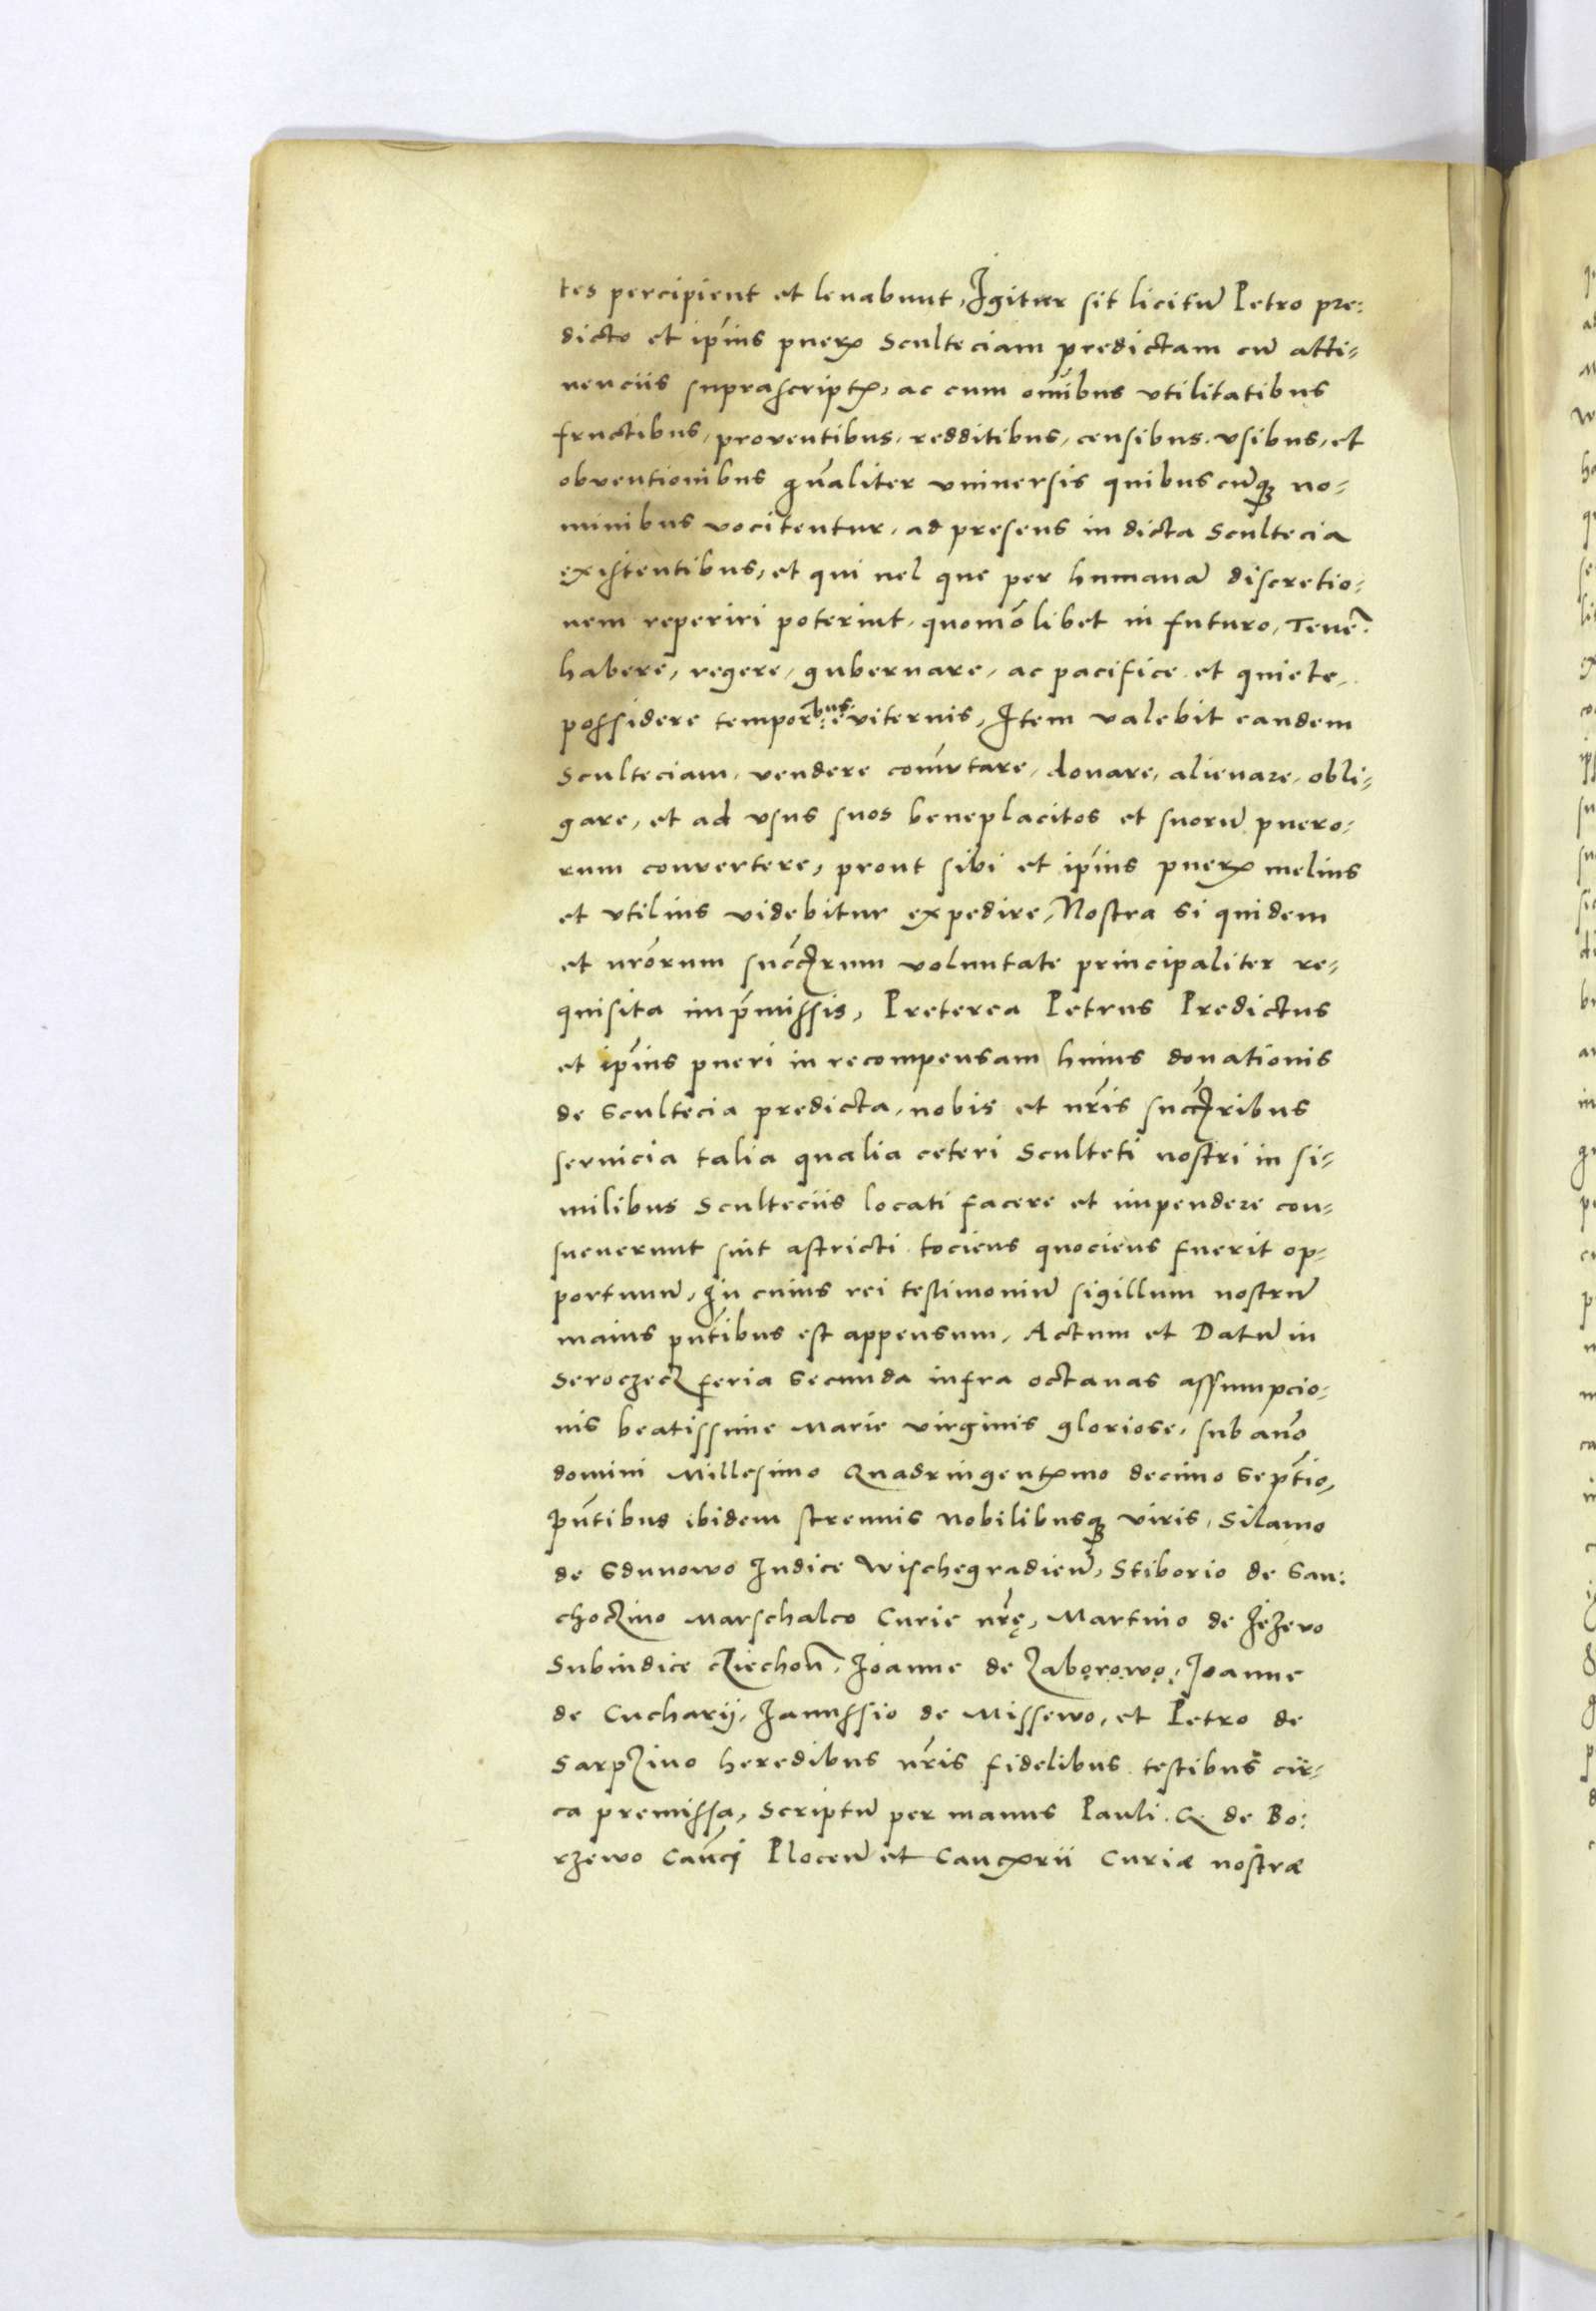 tes percipient et leuabunt, Igitur sit licitũ Petro pre:
dicto et ip̃ius pueris Sculteciam predictam cũ atti-
nenciis suprascriptis, ac cum oñibus vtilitatibus
fructibus, proventibus, redditibus, censibus, vsibus, et
obventionibus gñaliter vniuersis quibuscũq; no-
minibus vocitentur, ad presens in dicta Scultecia
existentibus, et qui uel que per humanã discretio-
nem reperiri poterint, quomõlibet in futuro, Tenẽ:
habere, regere, gubernare, ac pacifice et quiete,
possidere temporibus eviternis, Item valebit eandem
Sculteciam, vendere com̃utare, donare, alienare, obli-
gare, et ad vsus suos beneplacitos et suorũ puero-
rum convertere, prout sibi et ip̃ius pueris melius
et vtilius videbitur expedire, Nostra si quidem
et nr̃orum succ̃orum voluntate principaliter re-
quisita inp̃missis, Preterea Petrus Predictus
et ip̃ius pueri in recompensam huius donationis
de Scultecia predicta, nobis et nr̃is succ̃oribus
seruicia talia qualia ceteri Sculteti nostri in si-
milibus Sculteciis locati facere et impendere con-
sueuerunt sint astricti tociens quociens fuerit op-
portunũ, In cuius rei testimoniũ sigillum nostrũ
maius pñtibus est appensum, Actum et Datũ in
Seroczecz feria Secunda infra octauas assumpcio-
nis beatissime Marie virginis gloriose, sub anño
domini Millesimo Quadringentesimo decimo Sept̃io,
pñtibus ibidem strennis Nobilibusq; viris, Silamo
de Sdunowo Iudice Wischegradieñ, Stiborio de San:
choczino Marschalco Curie nr̃ę, Martino de Jeżewo
Subiudice Cziechoñ, Joanne de Zaborowo, Joanne
de Cucharij, Janussio de Missewo, et Petro de
Sarpzino heredibus nr̃is fidelibus testibus cir-
ca premissa, Scriptũ per manus Pauli de Bo:
rzewo Cañci Ploceñ et Cancellarii Curiæ nostræ